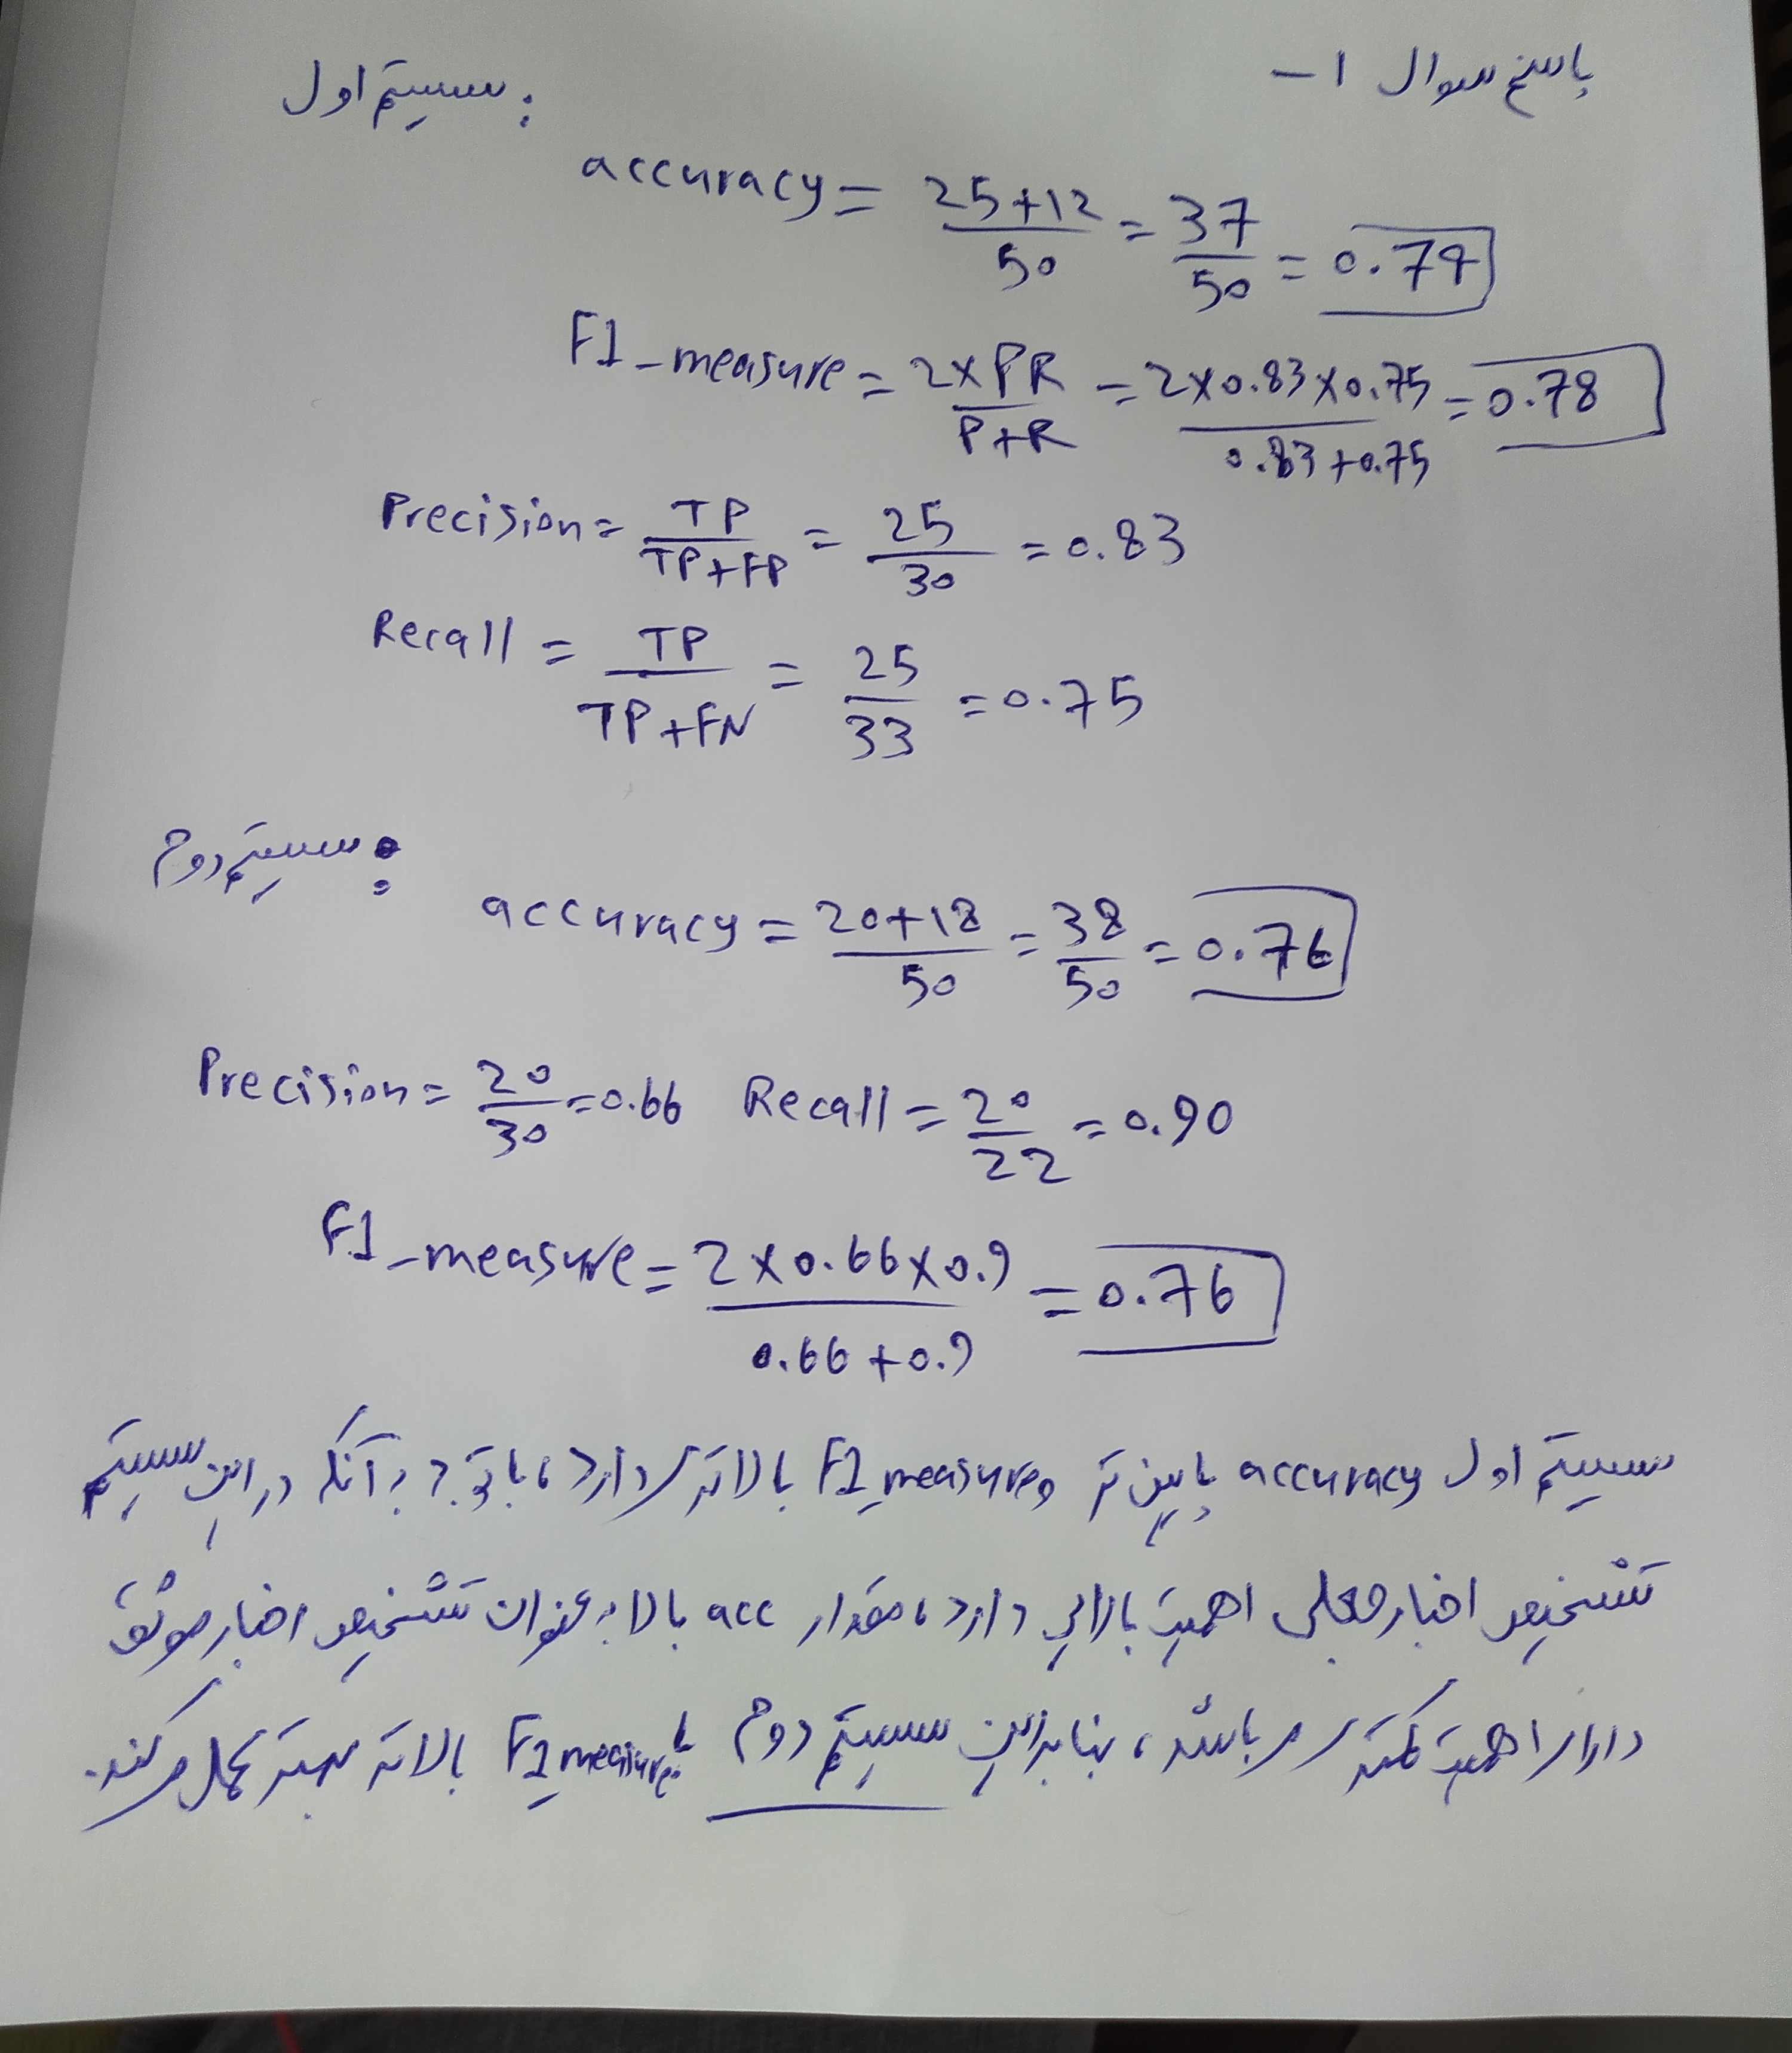 پاسخ سوال ۱ –
سیستم اول :
accuracy = 25+12 / 50 = 37 / 50 = 0.74
F1_measure = 2×PR / P+R = 2×0.83×0.75 / 0.83+0.75 = 0.78
Precision = TP / TP+FP = 25 / 30 = 0.83
Recall = TP / TP+FN = 25 / 33 = 0.75
سیستم دوم :
accuracy = 20+18 / 50 = 38 / 50 = 0.76
Precision = 20 / 30 = 0.66 Recall = 20 / 22 = 0.90
F1_measure = 2×0.66×0.9 / 0.66+0.9 = 0.76
سیستم اول accuracy پایین تر و F1_measure بالاتری دارد، با توجه به آنکه در این سیستم
تشخیص اخبار جعلی اهمیت بالایی دارد، مقدار acc بالا به عنوان تشخیص اخبار موثق،
دارای اهمیت کمتری می باشد، بنابراین سیستم دوم با F1_measure بالاتر بهتر عمل میکند.